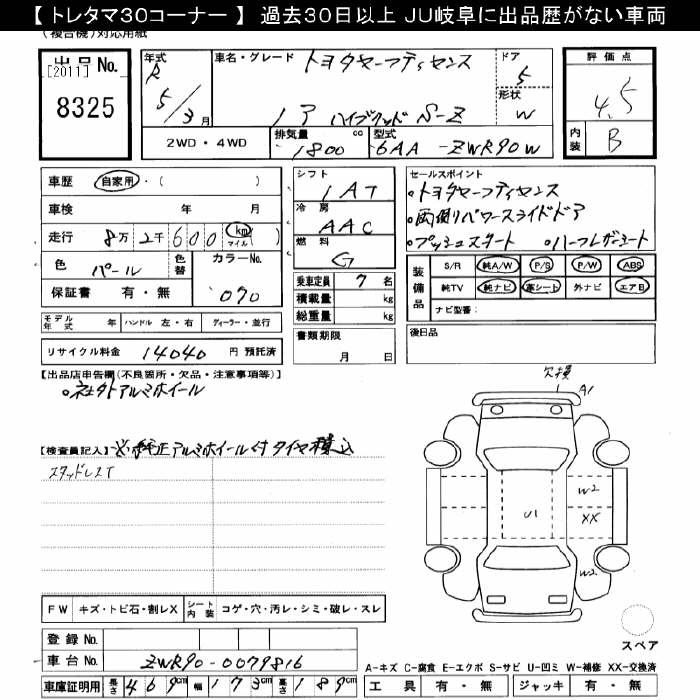 【 トレタマ30コーナー 】 過去30日以上 JU岐阜に出品歴がない車両
(複合機)対応用紙
出品 No.
[2011]
8325
年式
R
5/3月
車名・グレード
トヨタセーフティセンス
ドア
5
ノア ハイブリッド S-Z
形状
W
評価点
4.5
内装
B
2WD・4WD
排気量
1800 cc
型式
6AA-ZWR90W
車歴 自家用・( )
車検 年 月
走行 8万 2千 600 (km マイル)
色 パール 色替 カラーNo.
070
保証書 有・無
シフト
IAT
冷房
AAC
燃料
G
乗車定員 7 名
積載量 kg
総重量 kg
書類期限
月 日
セールスポイント
。トヨタセーフティセンス
。両側パワースライドドア
。プッシュスタート 。ハーフレザーシート
装備品
S/R 純A/W P/S P/W ABS
純TV 純ナビ 革シート 外ナビ エアB
ナビ型番:
モデル年式 年 ハンドル 左・右 ディーラー・並行
後日品
リサイクル料金 14040 円 預託済
【出品店申告欄(不良箇所・欠品・注意事項等)】
。社外アルミホイール
【検査員記入】 ※純正アルミホイール付タイヤ積込
スタッドレスT
欠損
A1
W2
U1
XX
W2
スペア
FW キズ・トビ石・割レX シート内装 コゲ・穴・汚レ・シミ・破レ・スレ
登録 No.
車台 No. ZWR90-0079816
車庫証明用 長さ 469cm 幅 173cm 高さ 189cm
A-キズ C-腐食 E-エクボ S-サビ U-凹ミ W-補修 XX-交換済
工具 有・無 ジャッキ 有・無